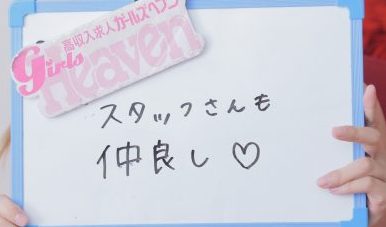 高収入求人ガールズヘブン
Girls
Heaven
スタッフさんも
仲良し♡